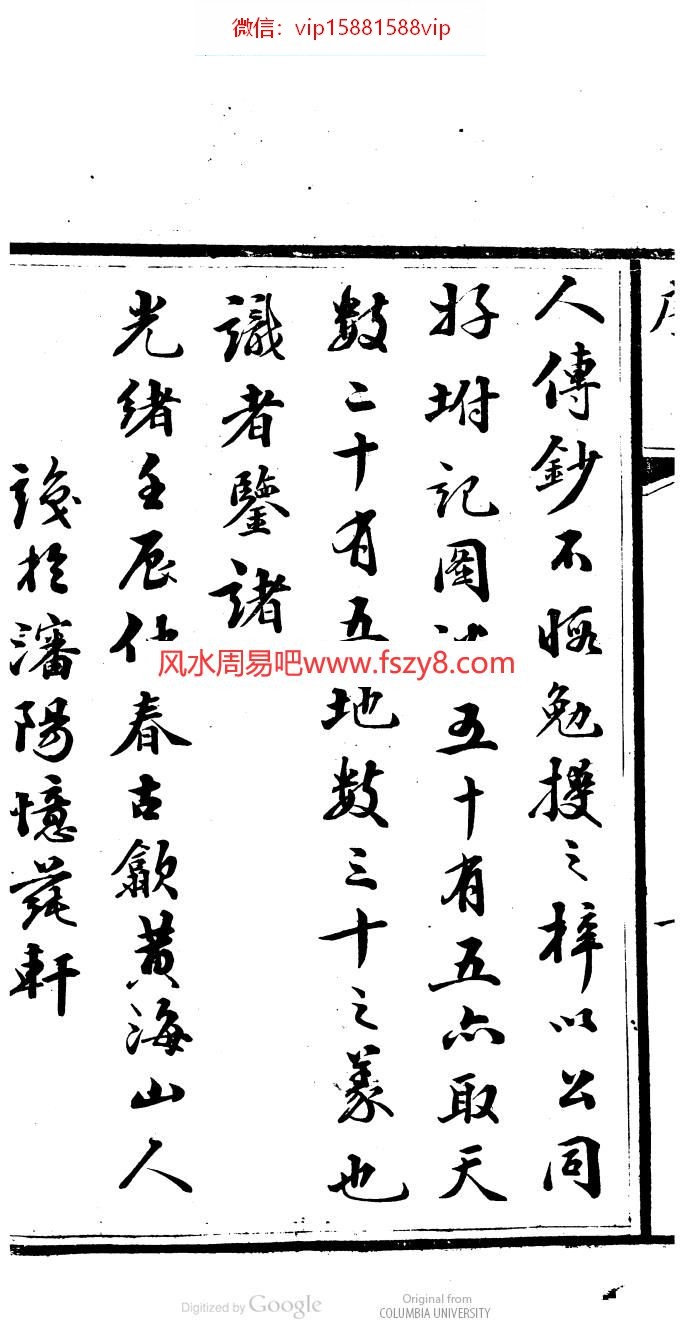 微信：vip15881588vip
人傳鈔不暇勉授之梓以公同
好坿記圖五十有五亦取天
數二十有五地數三十之義也
識者鑒諸
光緒壬辰仲春古歙黃海山人
於瀋陽憶軒
風水周易吧www.fszy8.com
一
Digitized by Google
Original from
COLUMBIA UNIVERSITY